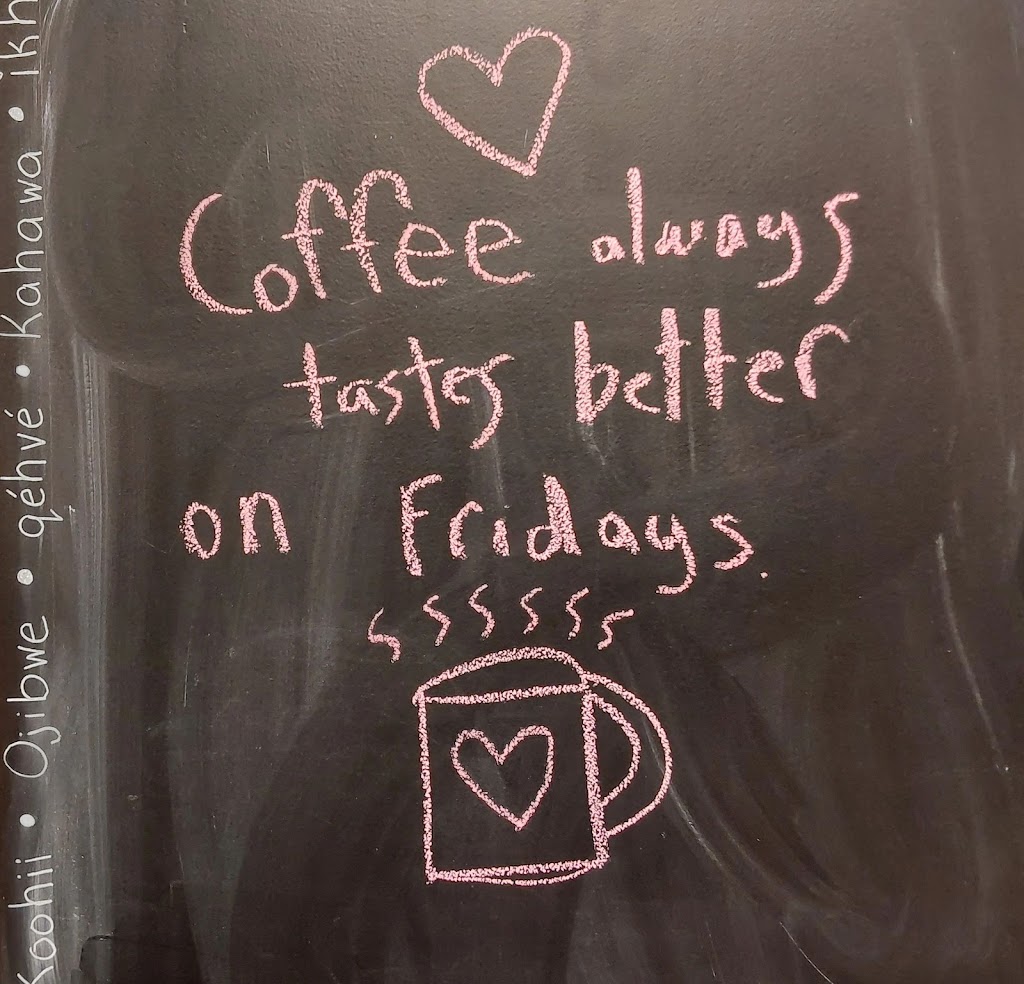 Coffee always
tastes better
on Fridays.
Koohii • Ojibwe • qéhvé • Kahawa • ikh